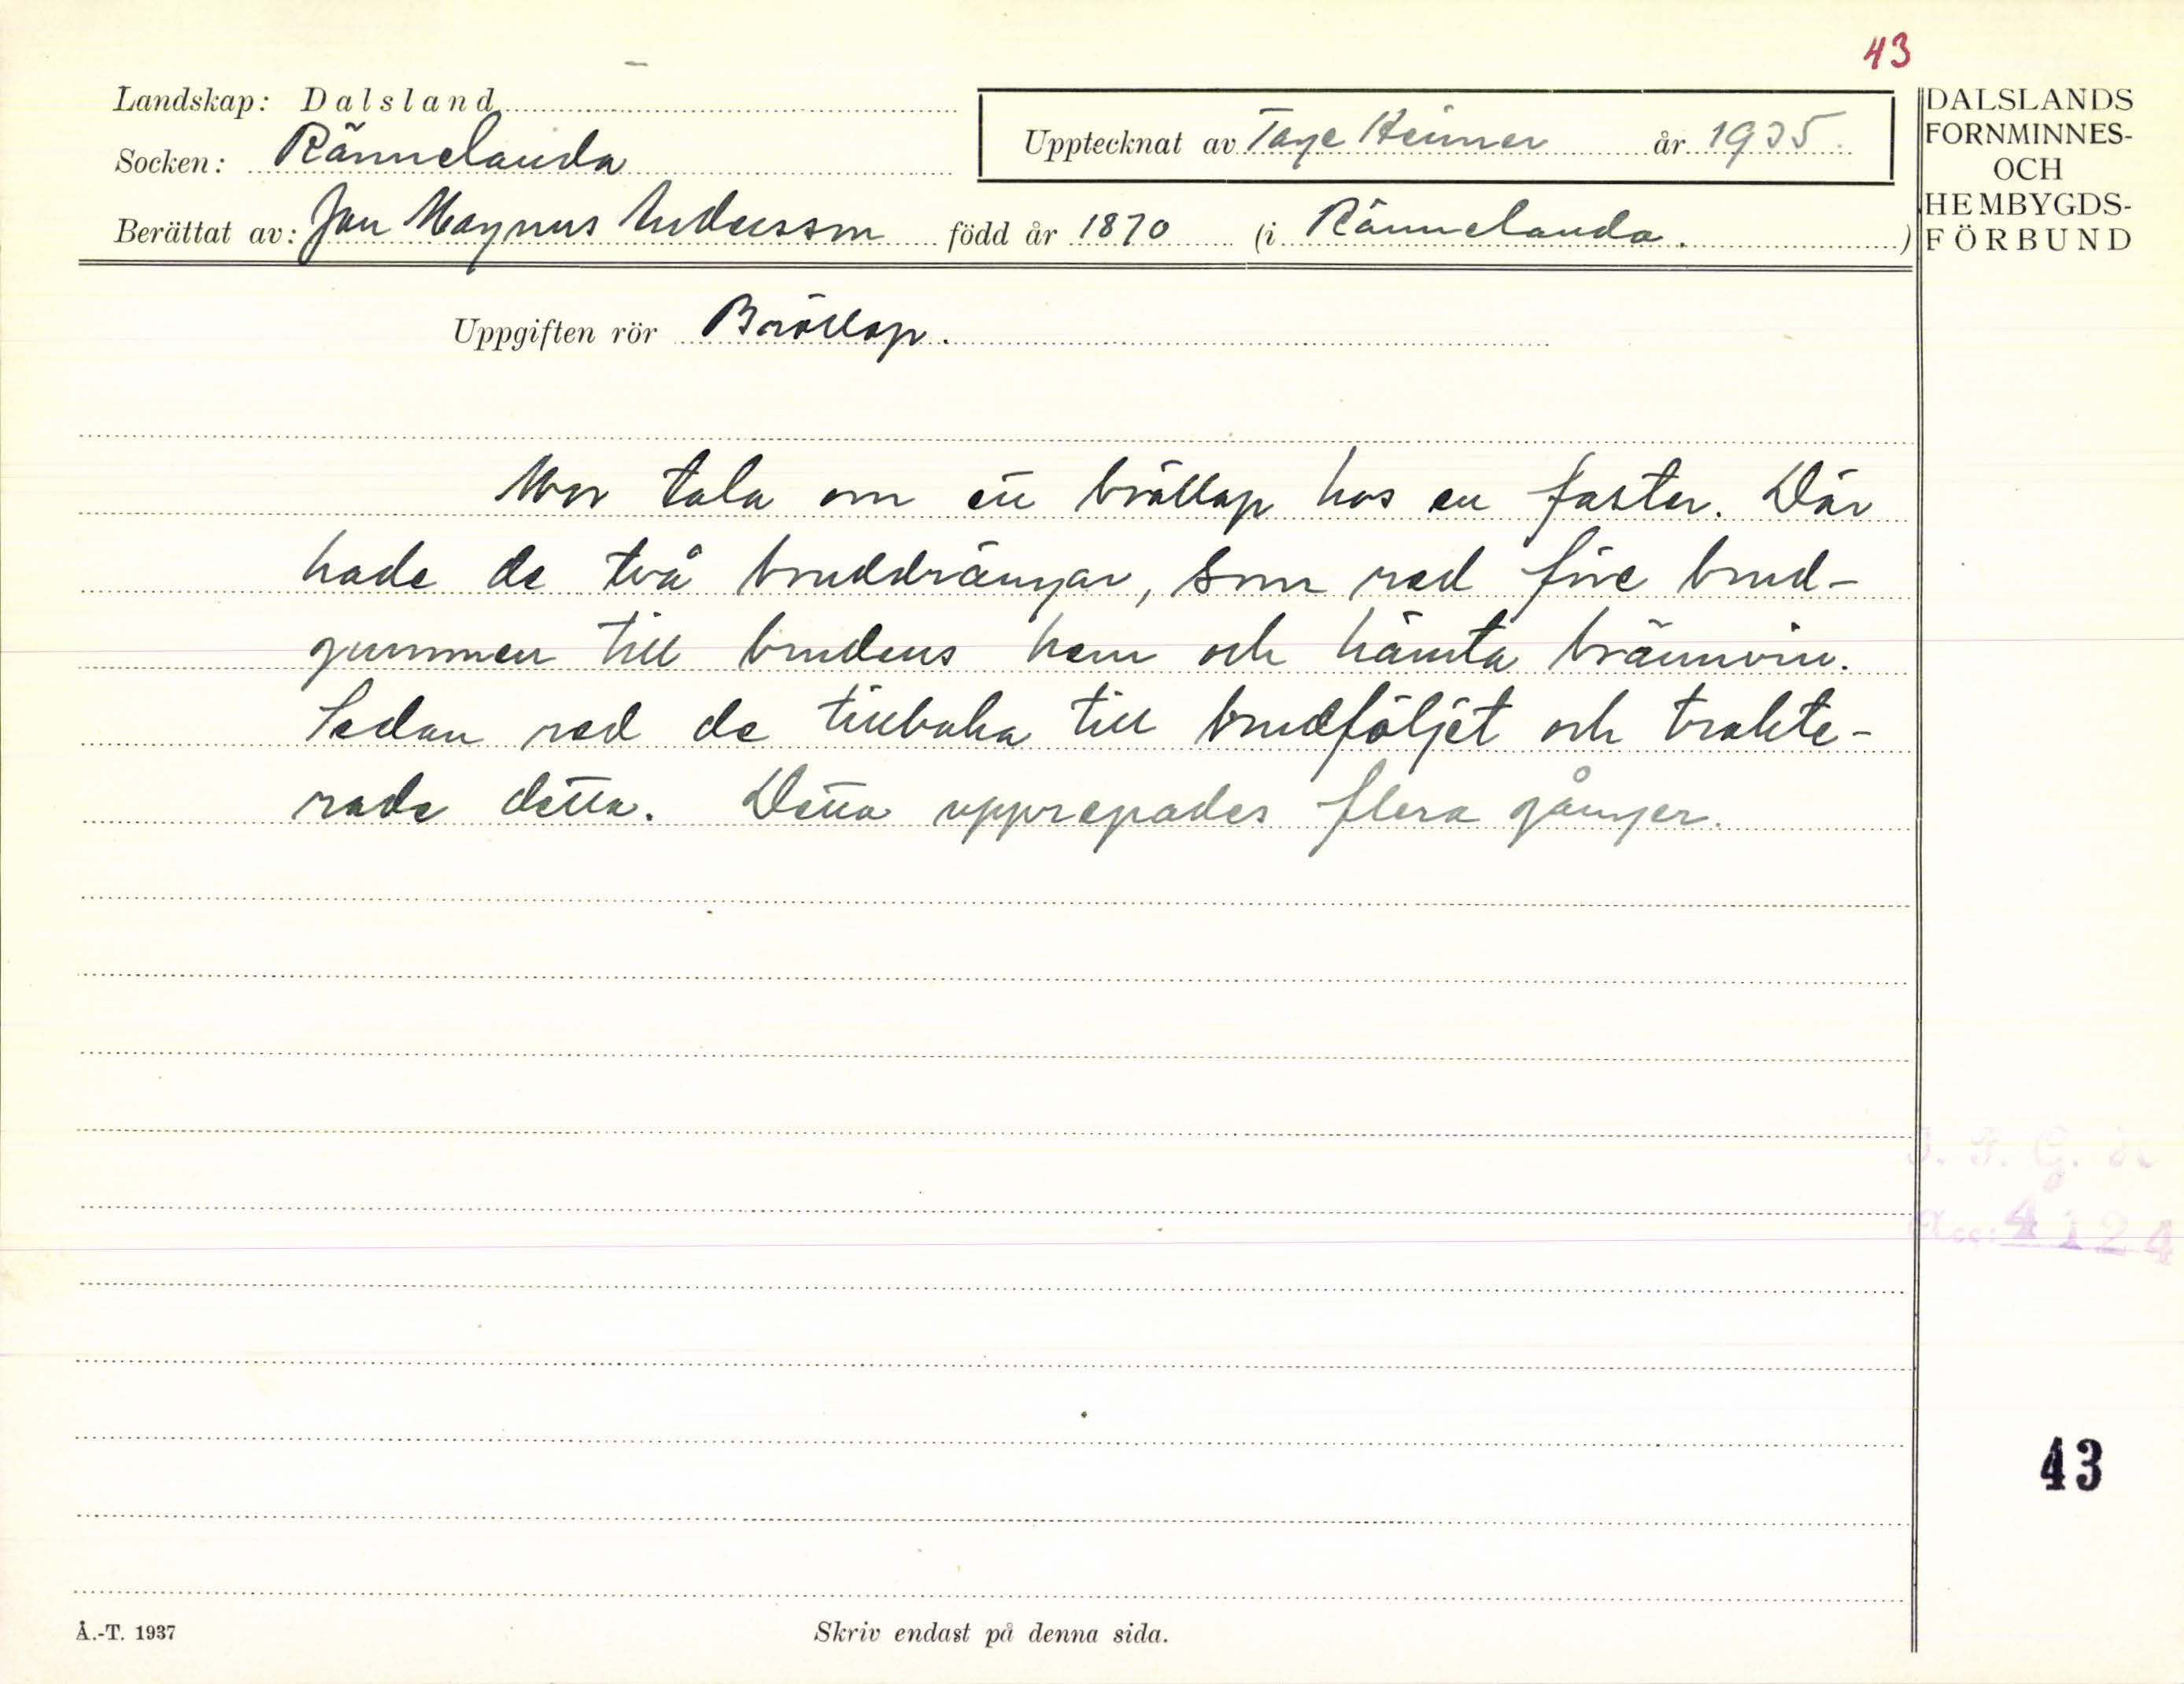 43
Landskap: Dalsland
Socken: Rännelanda
Upptecknat av Tage Heimer år 1935.
Berättat av: Jan Magnus Andersson född år 1870 (i Rännelanda.)
DALSLANDS
FORNMINNES-
OCH
HEMBYGDS-
FÖRBUND
Uppgiften rör Bröllop.
Mor tala om ett bröllop hos en faster. Där
hade de två bruddrängar, som red före brud-
gummen till brudens hem och hämta brännvin.
Sedan red de tillbaka till brudföljet och trakte-
rade detta. Detta upprepades flera gånger.
Acc: 4124
43
Å.-T. 1937
Skriv endast på denna sida.